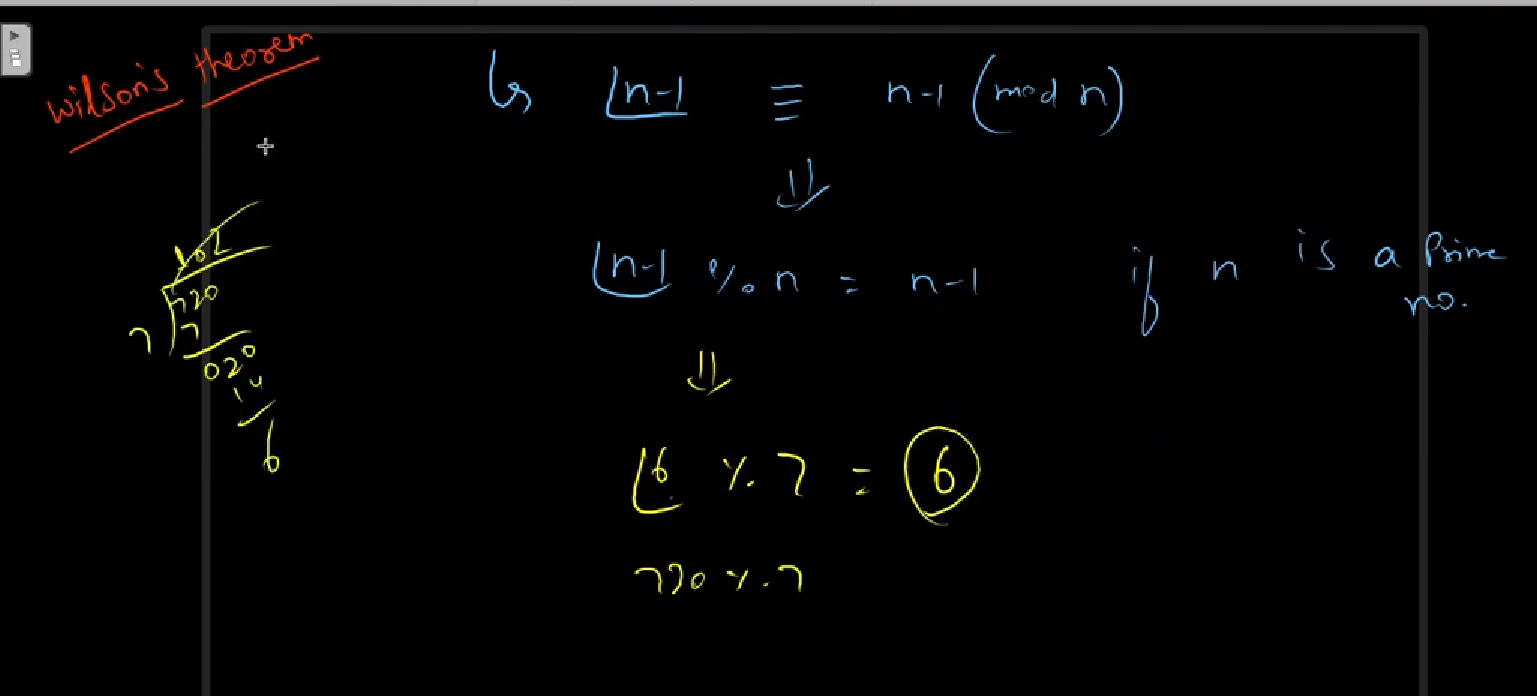 Wilson's theorem
↳ ⌊n-1 ≡ n-1 (mod n)
⇓
⌊n-1 % n = n-1 if n is a Prime no.
⇓
⌊6 % 7 = 6
720 % 7
102
7)720
7
020
14
6